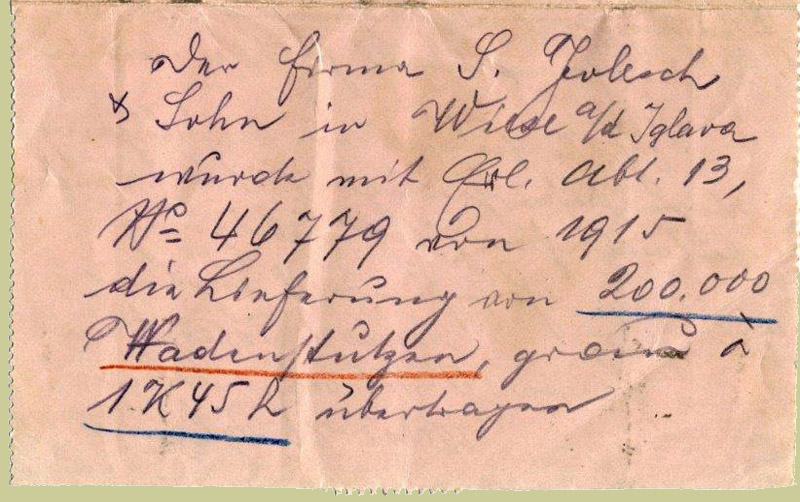 Der Firma S. Jolesch
& Sohn in Wiese a/d Iglava
wurde mit Erl. Abt. 13,
No 46779 von 1915
die Lieferung von 200.000
Wadenstutzen, à
1 K 45 h übertragen